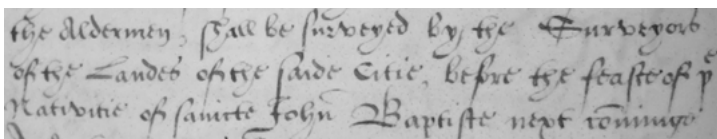 the Aldermen, shall be surveyed by the Surveyors
of the Landes of the saide Citie, before the feaste of yͤ
Nativitie of saincte John Baptiste next cominge